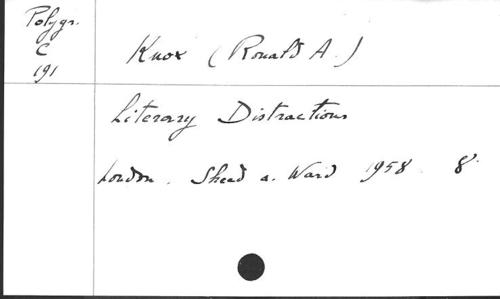 Polygr.
C
191
Knox (Ronald A.)
Literary Distractions
London. Shead a. Ward 1958. 8°